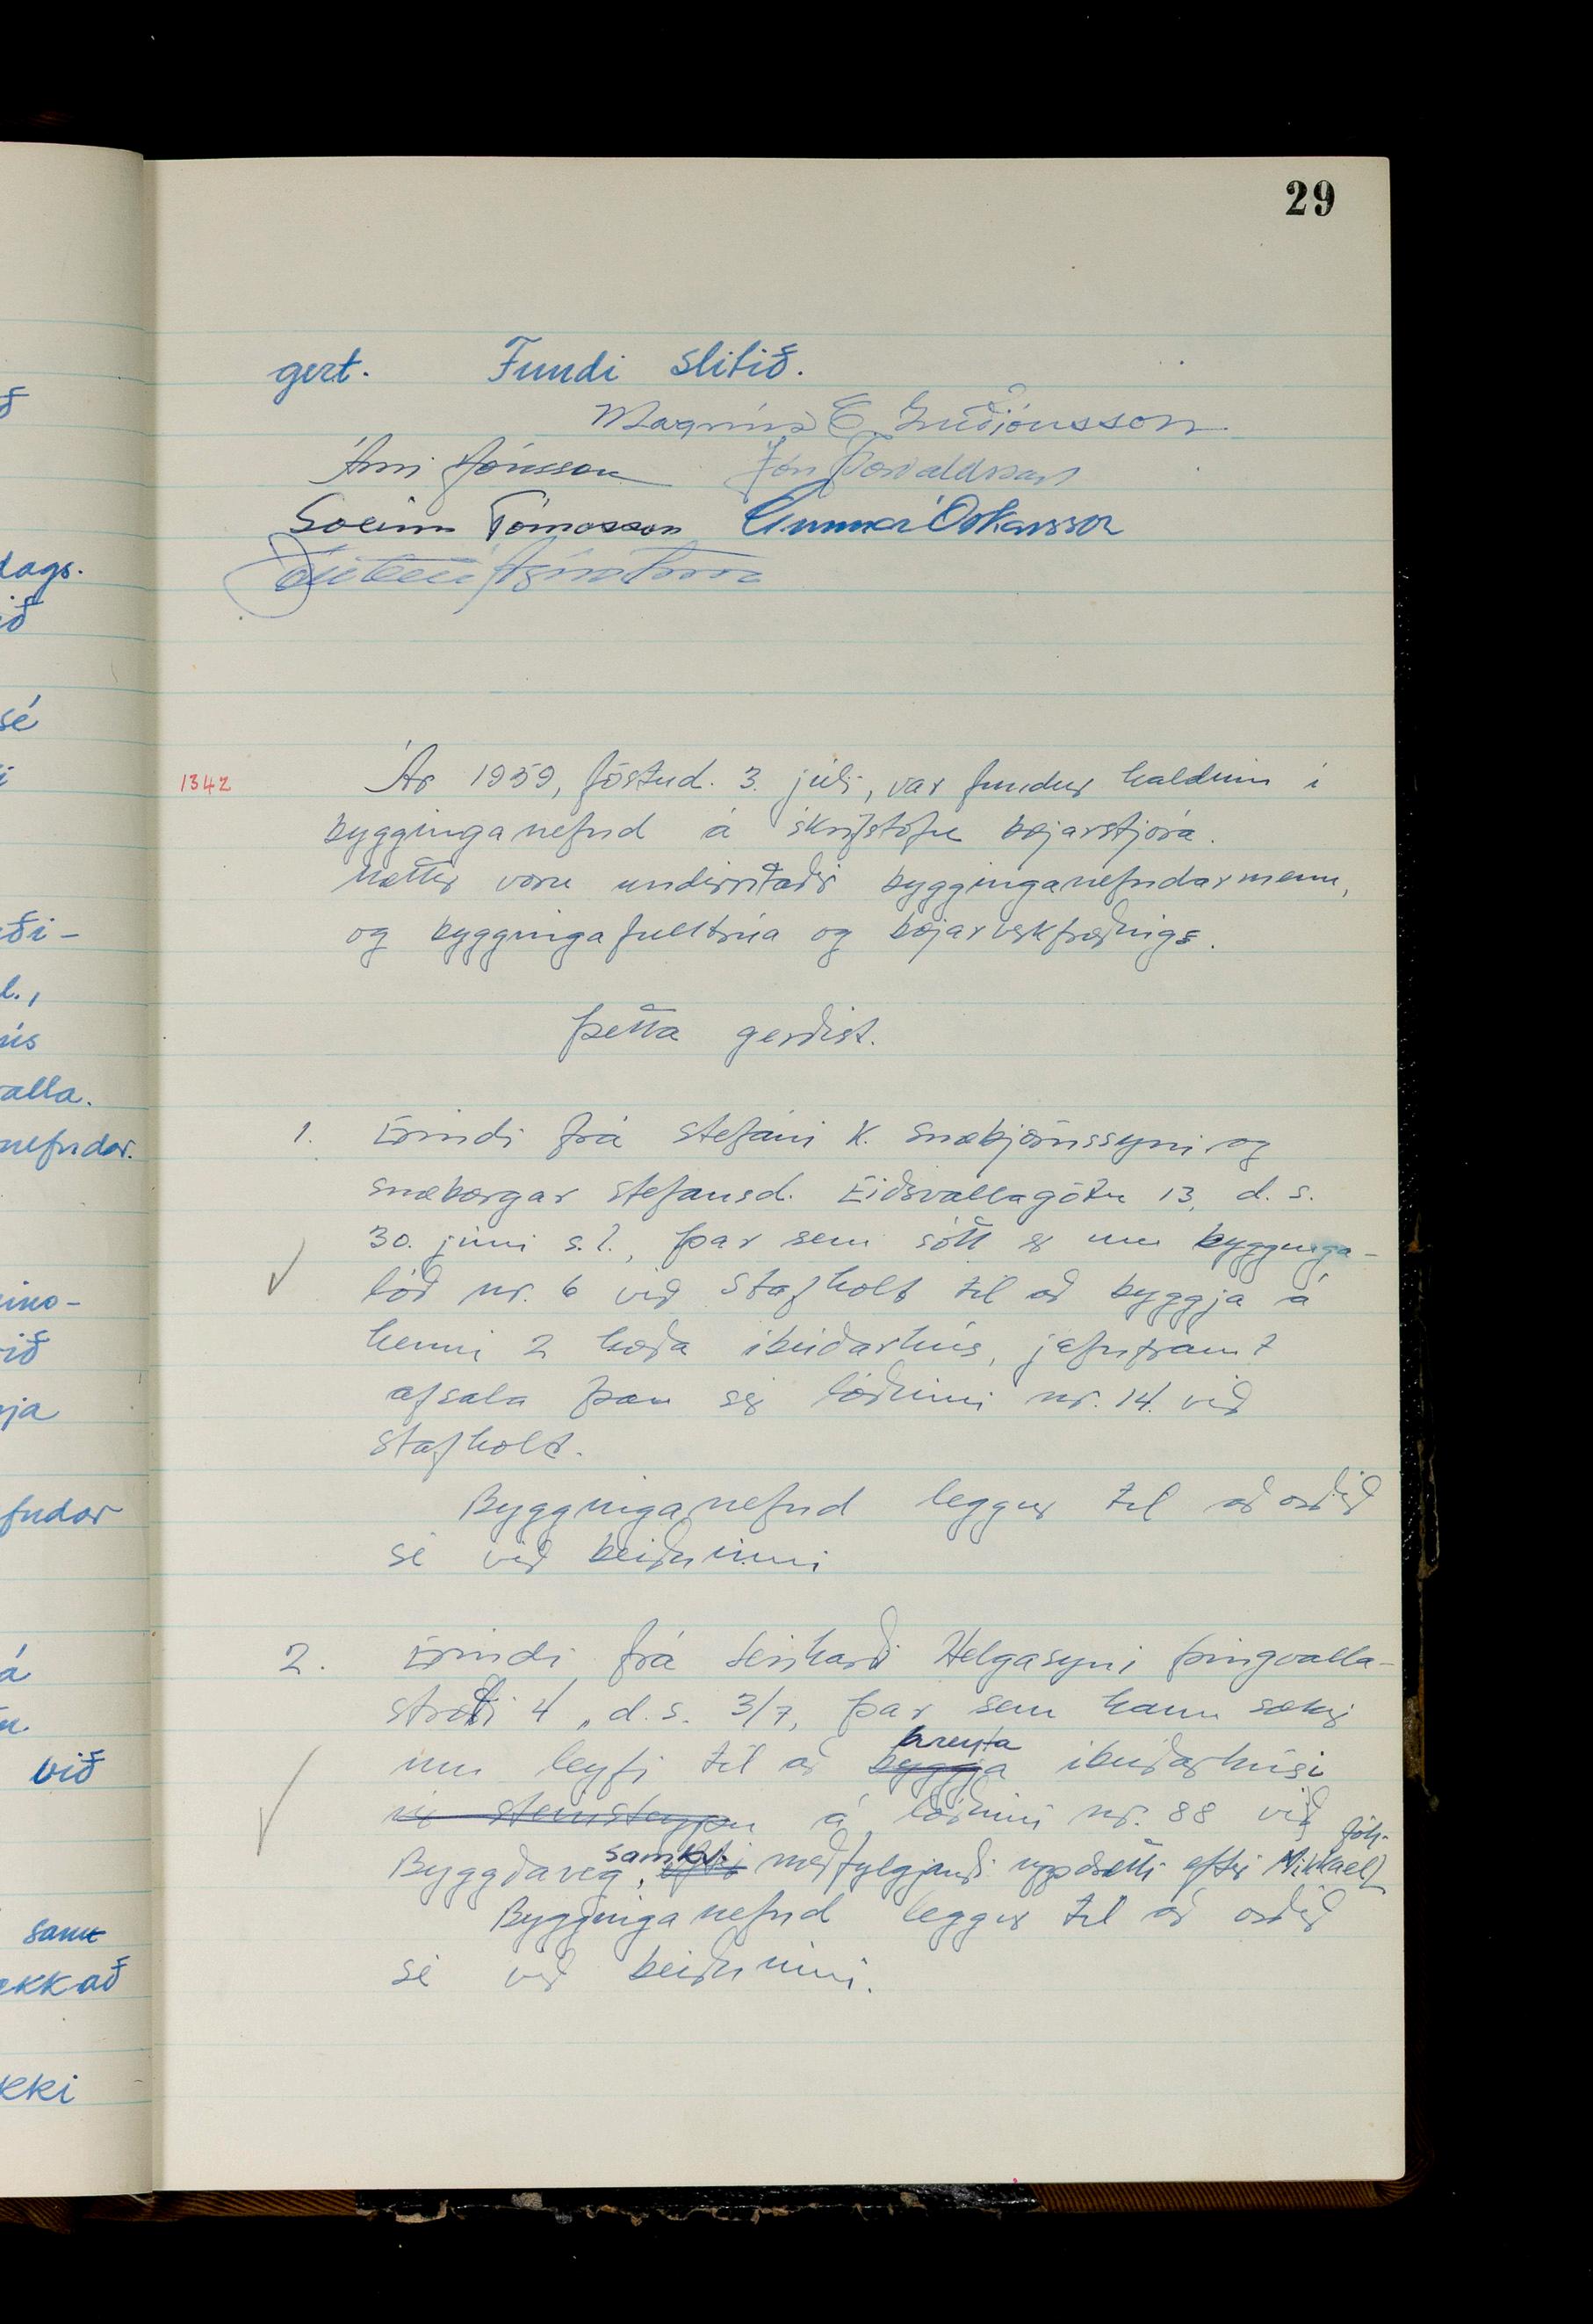 29
gert. Fundi slitið.
Magnús E. Guðjónsson
Árni Jónsson Jón Þorvaldsson
Sveinn Tómasson Gunnar Óskarsson
1342 Ár 1959, föstud. 3. júlí, var fundur haldinn í
bygginganefnd á skrifstofu bæjarstjóra.
Mættir voru undirritaðir bygginganefndarmenn,
og byggingafulltrúa og bæjarverkfræðings.
Þetta gerðist.
1. Erindi frá Stefáni K. Snæbjörnssyni og
Snæborgar Stefánsd. Eiðsvallagötu 13, d.s.
30. júní s.l., þar sem sótt er um bygginga-
lóð nr. 6 við Stafholt til að byggja á
henni 2 hæða íbúðarhús, jafnframt
afsala þau sér lóðinni nr. 14. við
Stafholt.
Bygginganefnd leggur til að orðið
sé við beiðninni
2. Erindi frá Leinharði Helgasyni Þingvalla-
stræti 4, d.s. 3/7, þar sem hann sækir
breyta
um leyfi til að byggja íbúðarhúsi
úr steinsteypu á lóðinni nr. 88 við
Byggðaveg, samkv. meðfylgjandi uppdrætti eftir Mikkael Jóh.
Bygginganefnd leggur til að orðið
sé við beiðninni.
ð
dags.
ið
sé
i
ði-
l.,
ús
valla.
nefndar.
ino-
ið
ja
fndar
á
við
samt
ekkað
kki